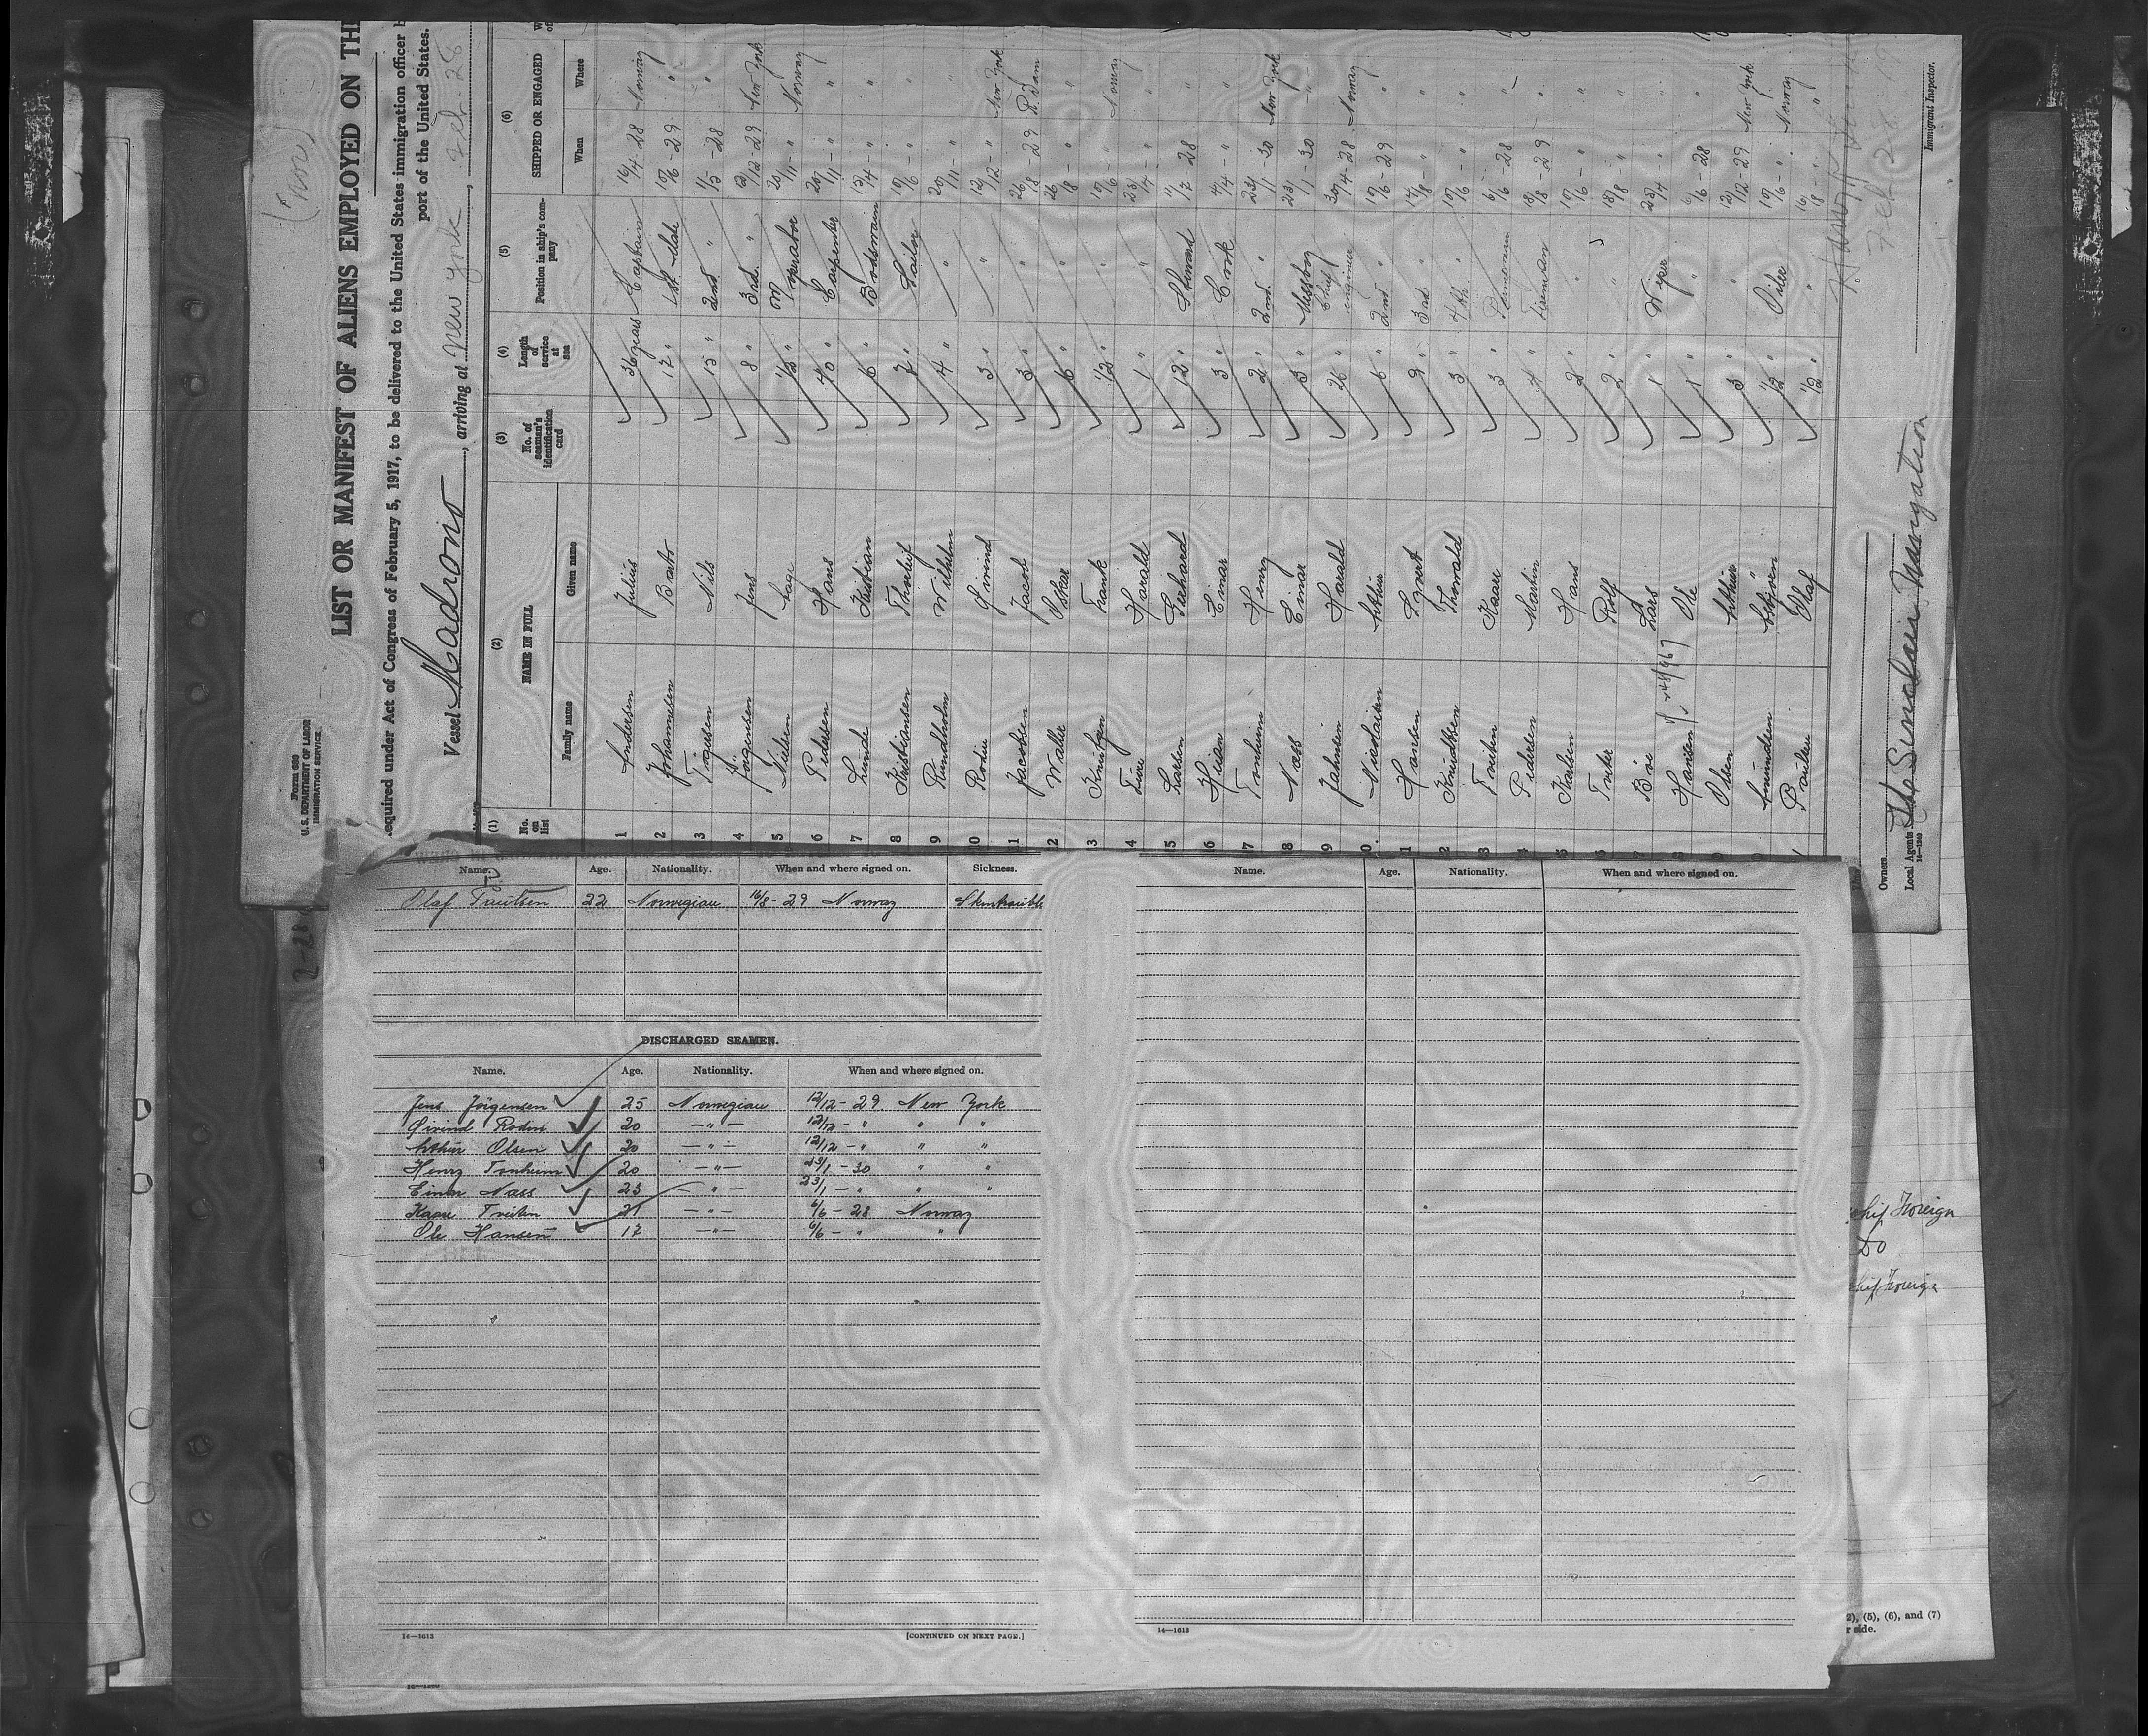 (Nov)
Form 689
U. S. DEPARTMENT OF LABOR
IMMIGRATION SERVICE
LIST OR MANIFEST OF ALIENS EMPLOYED ON TH
equired under Act of Congress of February 5, 1917, to be delivered to the United States immigration officer
port of the United States.
Vessel Madrono, arriving at New York, Feb. 28
(1) (2) (3) (4) (5) (6)
No. on list NAME IN FULL No. of seaman's identification card Length of service at sea Position in ship's company SHIPPED OR ENGAGED
Family name Given name When Where
1 Andersen Julius 36 years Captain 16/4-28 Norway
2 Johannesen 17 " 1st Mate 10/6-29 "
3 Nils 15 " 2nd " -28 "
4 Jörgensen Jens 8 " 3rd " 12/12-29 New York
5 Nielsen Aage Operator 20/11-" Norway
6 Pedersen Hans 40 " Carpenter 20/11-" "
7 Lunde Kristian 6 " Bodswain "
8 Kristiansen Thorleif 7 " Sailor 10/6-" "
9 Rundholm Wilhelm 4 " " 20/11-" "
10 Rodin Öivind 3 " " 12/12-" New York
11 Jacobsen Jacob 3 " " 26/8-29 R. Dam
12 Waller Oskar 6 " " 26/8-" "
13 Knudsen Frank 1/2 " " 10/6-" Norway
14 Harald 1 " " 23/4-" "
15 Larsen Gerhard 12 " Steward -28 "
16 Einar 3 " Cook 4/4-" "
17 Tonheim Henry 2 " 2nd " 23/1-30 New York
18 Næss Einar 3 " Messboy 23/1-30 "
19 Johnsen Harald 26 " Chief engineer 30/4-28 Norway
0. Nicolaisen Arthur 6 " 2nd " 10/6-29 "
1 Hansen 9 " 3rd " 14/8-" "
2 Knudsen Thorvald 3 " 4th " 10/6-" "
3 Tveiten Kaare 3 " 6/6-28 "
4 Pedersen Martin 4 " Fireman 18/8-29 "
5 Karlsen Hans 2 " " 10/6-" "
6 Rolf 2 " " 18/8-" "
7 Lars 1 " Wiper 23/4 "
8 Hansen Ole 1 " " 6/6-28 "
9 Olsen Arthur 3 " " 12/12-29 New York
0 Amundsen 1/2 " Oiler 10/6-" Norway
1 Paulsen Olaf 1/2 " " 16/8-" "
Feb. 28
Immigrant Inspector.
Owners
Local Agents The Sinclair Navigation
14—1240
Name. Age. Nationality. When and where signed on. Sickness.
Olaf Paulsen 22 Norwegian 16/8-29 Norway Skintrouble
DISCHARGED SEAMEN.
Name. Age. Nationality. When and where signed on.
Jens Jörgensen 25 Norwegian 12/12-29 New York
Öivind Rodin 20 —"— 12/12-" " "
Arthur Olsen 20 —"— 12/12-" " "
Henry Tonheim 20 —"— 23/1-30 " "
Einar Næss 23 —"— 23/1-" " "
Kaare Tveiten 21 —"— 6/6-28 Norway
Ole Hansen 17 —"— 6/6-" "
14—1613 [CONTINUED ON NEXT PAGE.]
Name. Age. Nationality. When and where signed on.
14—1613
ship Foreign
Do
ship Foreign
2), (5), (6), and (7)
r side.